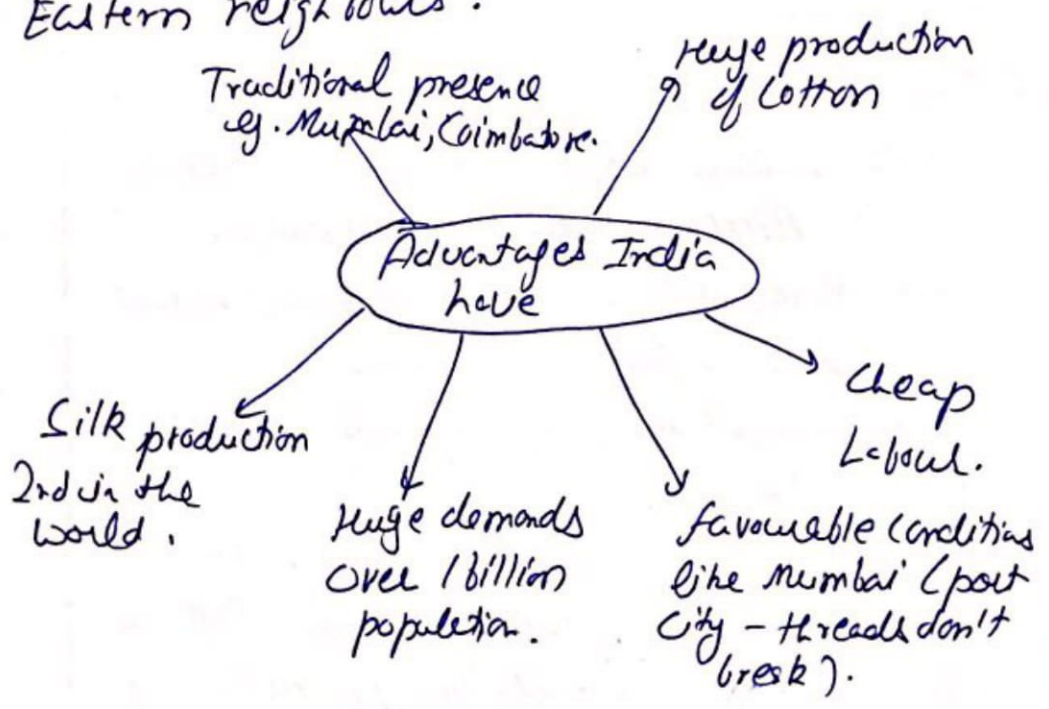 Eastern neighbours.
Traditional presence
eg. Mumbai, Coimbatore.
Huge production
of Cotton
Advantages India
have
Cheap
Labour.
Silk production
2nd in the
world.
Huge demands
over 1 billion
population.
favourable Conditions
like Mumbai (port
City - threads don't
break).